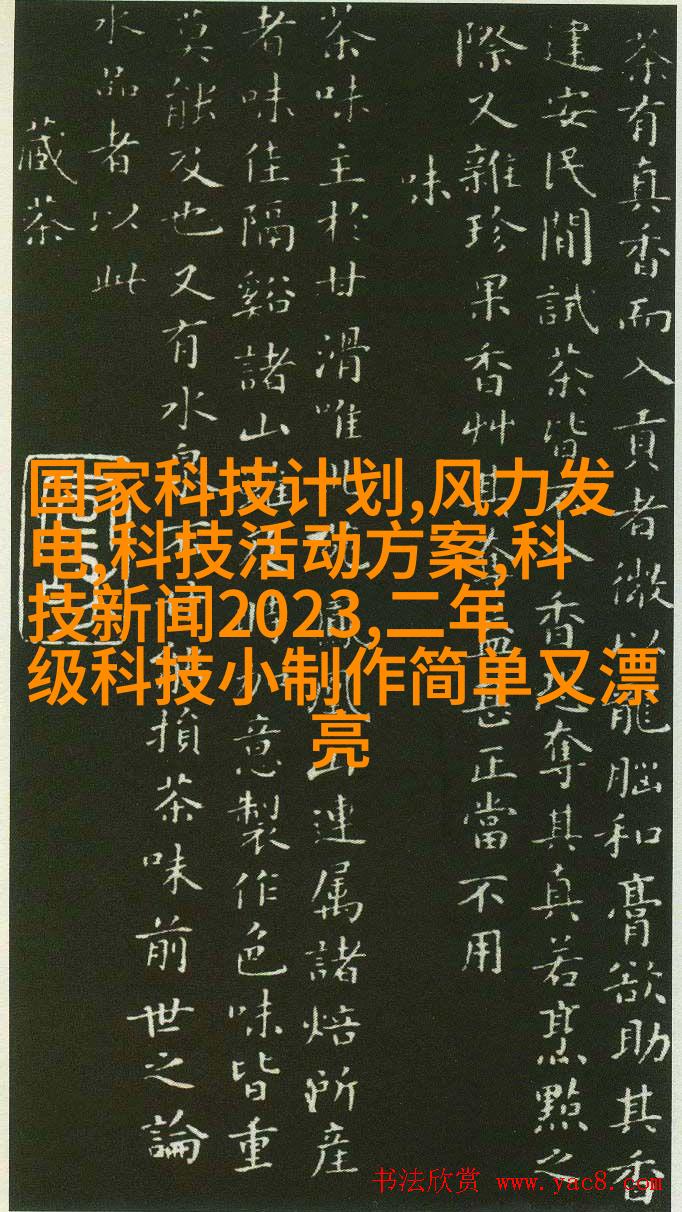 茶有真香而入貢者微以龍腦和膏欲助其香
建安民間試茶皆入香恐奪其真若烹點之
際又雜珍果香艸其益甚正當不用
味
茶味主於甘滑唯北山連属諸焙所産
者味佳隔谿諸山意製作色味皆重
莫能及也又有水泉損茶味前世之論
水品者以此
藏茶
国家科技计划,风力发
电,科技活动方案,科
技新闻2023,二年
级科技小制作简单又漂
亮
书法欣赏 www.yac8.com